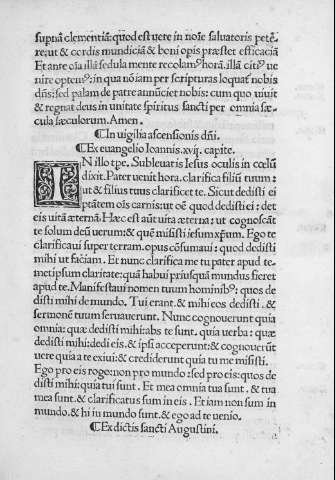 supnā clementiā: quod est uere in noīe saluatoris petē-
re: ut & cordis mundiciā & boni opis præstet efficaciā
Et ante oīa illā sedula mente recolam9 horā. illā cit9 ue
nire optem9: in qua nō iam per scripturas loquat nobis
dñs: sed palam de patre annūciet nobis: cum quo uiuit
& regnat deus in unitate spiritus sancti per omnia sæ-
cula sæculorum. Amen.
¶ In uigilia ascensionis dñi.
¶ Ex euangelio Ioannis. xvij. capite.
IN illo tpe. Subleuatis Iesus oculis in cœlū
dixit. Pater uenit hora. clarifica filiū tuum:
ut & filius tuus clarificet te. Sicut dedisti ei
ptātem oīs carnis: ut oē quod dedisti ei: det
eis uitā æternā. Hæc est aūt uita æterna: ut cognoscāt
te solum deū uerum: & quē misisti iesum xp̄um. Ego te
clarificaui super terram. opus cōsumaui: quod dedisti
mihi ut faciam. Et nunc clarifica me tu pater apud te-
metipsum claritate: quā habui priusquā mundus fieret
apud te. Manifestaui nomen tuum hominib9: quos de
disti mihi de mundo. Tui erant. & mihi eos dedisti. &
sermonē tuum seruauerunt. Nunc cognouerunt quia
omnia: quæ dedisti mihi: abs te sunt. quia uerba: quæ
dedisti mihi: dedi eis. & ipsi acceperunt: & cognouerūt
uere quia a te exiui: & crediderunt quia tu me misisti.
Ego pro eis rogo: non pro mundo: sed pro eis: quos de
disti mihi: quia tui sunt. Et mea omnia tua sunt. & tua
mea sunt. & clarificatus sum in eis. Et iam non sum in
mundo. & hi iu mundo sunt. & ego ad te uenio.
¶ Ex dictis sancti Augustini.